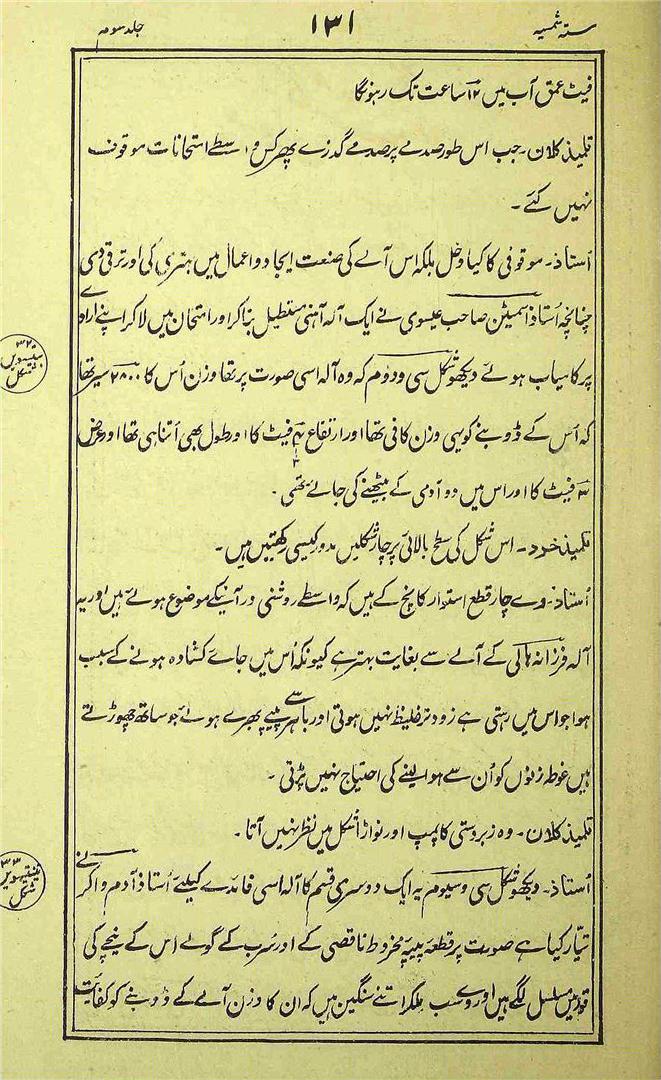 ستہ شمسیہ ۱۳۱ جلد سوم
فیٹ عمق آب میں ۱۲ ساعت تک رہونگا
تلمیذ کلان۔ جب اس طور صدمے پر صدمے گذرے پھر کس واسطے امتحانات موقوف
نہیں کئے۔
اُستاذ۔ موقوفی کا کیا دخل بلکہ اس آلے کی صنعت ایجاد و اعمال میں ہنری کی اور ترقی دی
چنانچہ اُستاذ اسمیٹن صاحب عیسوی نے ایک آلہ آہنی مستطیل بنا کر اور امتحان میں لا کر اپنے ارادے
پر کامیاب ہوئے دیکھو شکل سی و دوم کہ وہ آلہ اسی صورت پر تھا وزن اُس کا ۲۸۰۰ سیر تھا
۳۲ بتیسویں شکل
کہ اُس کے ڈوبنے کو یہی وزن کافی تھا اور ارتفاع ۴ فیٹ کا اور طول بھی اُتنا ہی تھا اور عرض
۳ فیٹ کا اور اس میں دو آدمی کے بیٹھنے کی جائے تھی۔
تلمیذ خرد۔ اس شکل کی سطح بالائی پر چار شکلیں مدور کیسی رکھتیں ہیں۔
اُستاذ۔ وے چار قطع استدار کانچ کے ہیں کہ واسطے روشنی در آنیکے موضوع ہوئے ہیں اور یہ
آلہ فرزانہ ہالی کے آلے سے بغایت بہتر ہے کیونکہ اُس میں جائے کشادہ ہونے کے سبب
ہوا جو اس میں رہتی ہے زود تر غلیظ نہیں ہوتی اور باہر سے پیپے بھرے ہوئے جو ساتھ چھوڑتے
ہیں غوطہ زنوں کو اُن سے ہوا لینے کی احتیاج نہیں پڑتی۔
تلمیذ کلان۔ وہ زبردستی کا پمپ اور نواڑا شکل میں نظر نہیں آتا۔
اُستاذ۔ دیکھو شکل سی و سیوم یہ ایک دوسری قسم کا آلہ اسی فائدے کیلئے اُستاذ آدم واکر نے
۳۳ تینتیسویں شکل
تیار کیا ہے صورت پر قطعہ پیپہ مخروط ناقصی کے اور سُرب کے گولے اس کے نیچے کی
قور میں مسلسل لگے ہیں اور وے سب ملکر اتنے سنگین ہیں کہ ان کا وزن آلے کے ڈوبنے کو کفایت